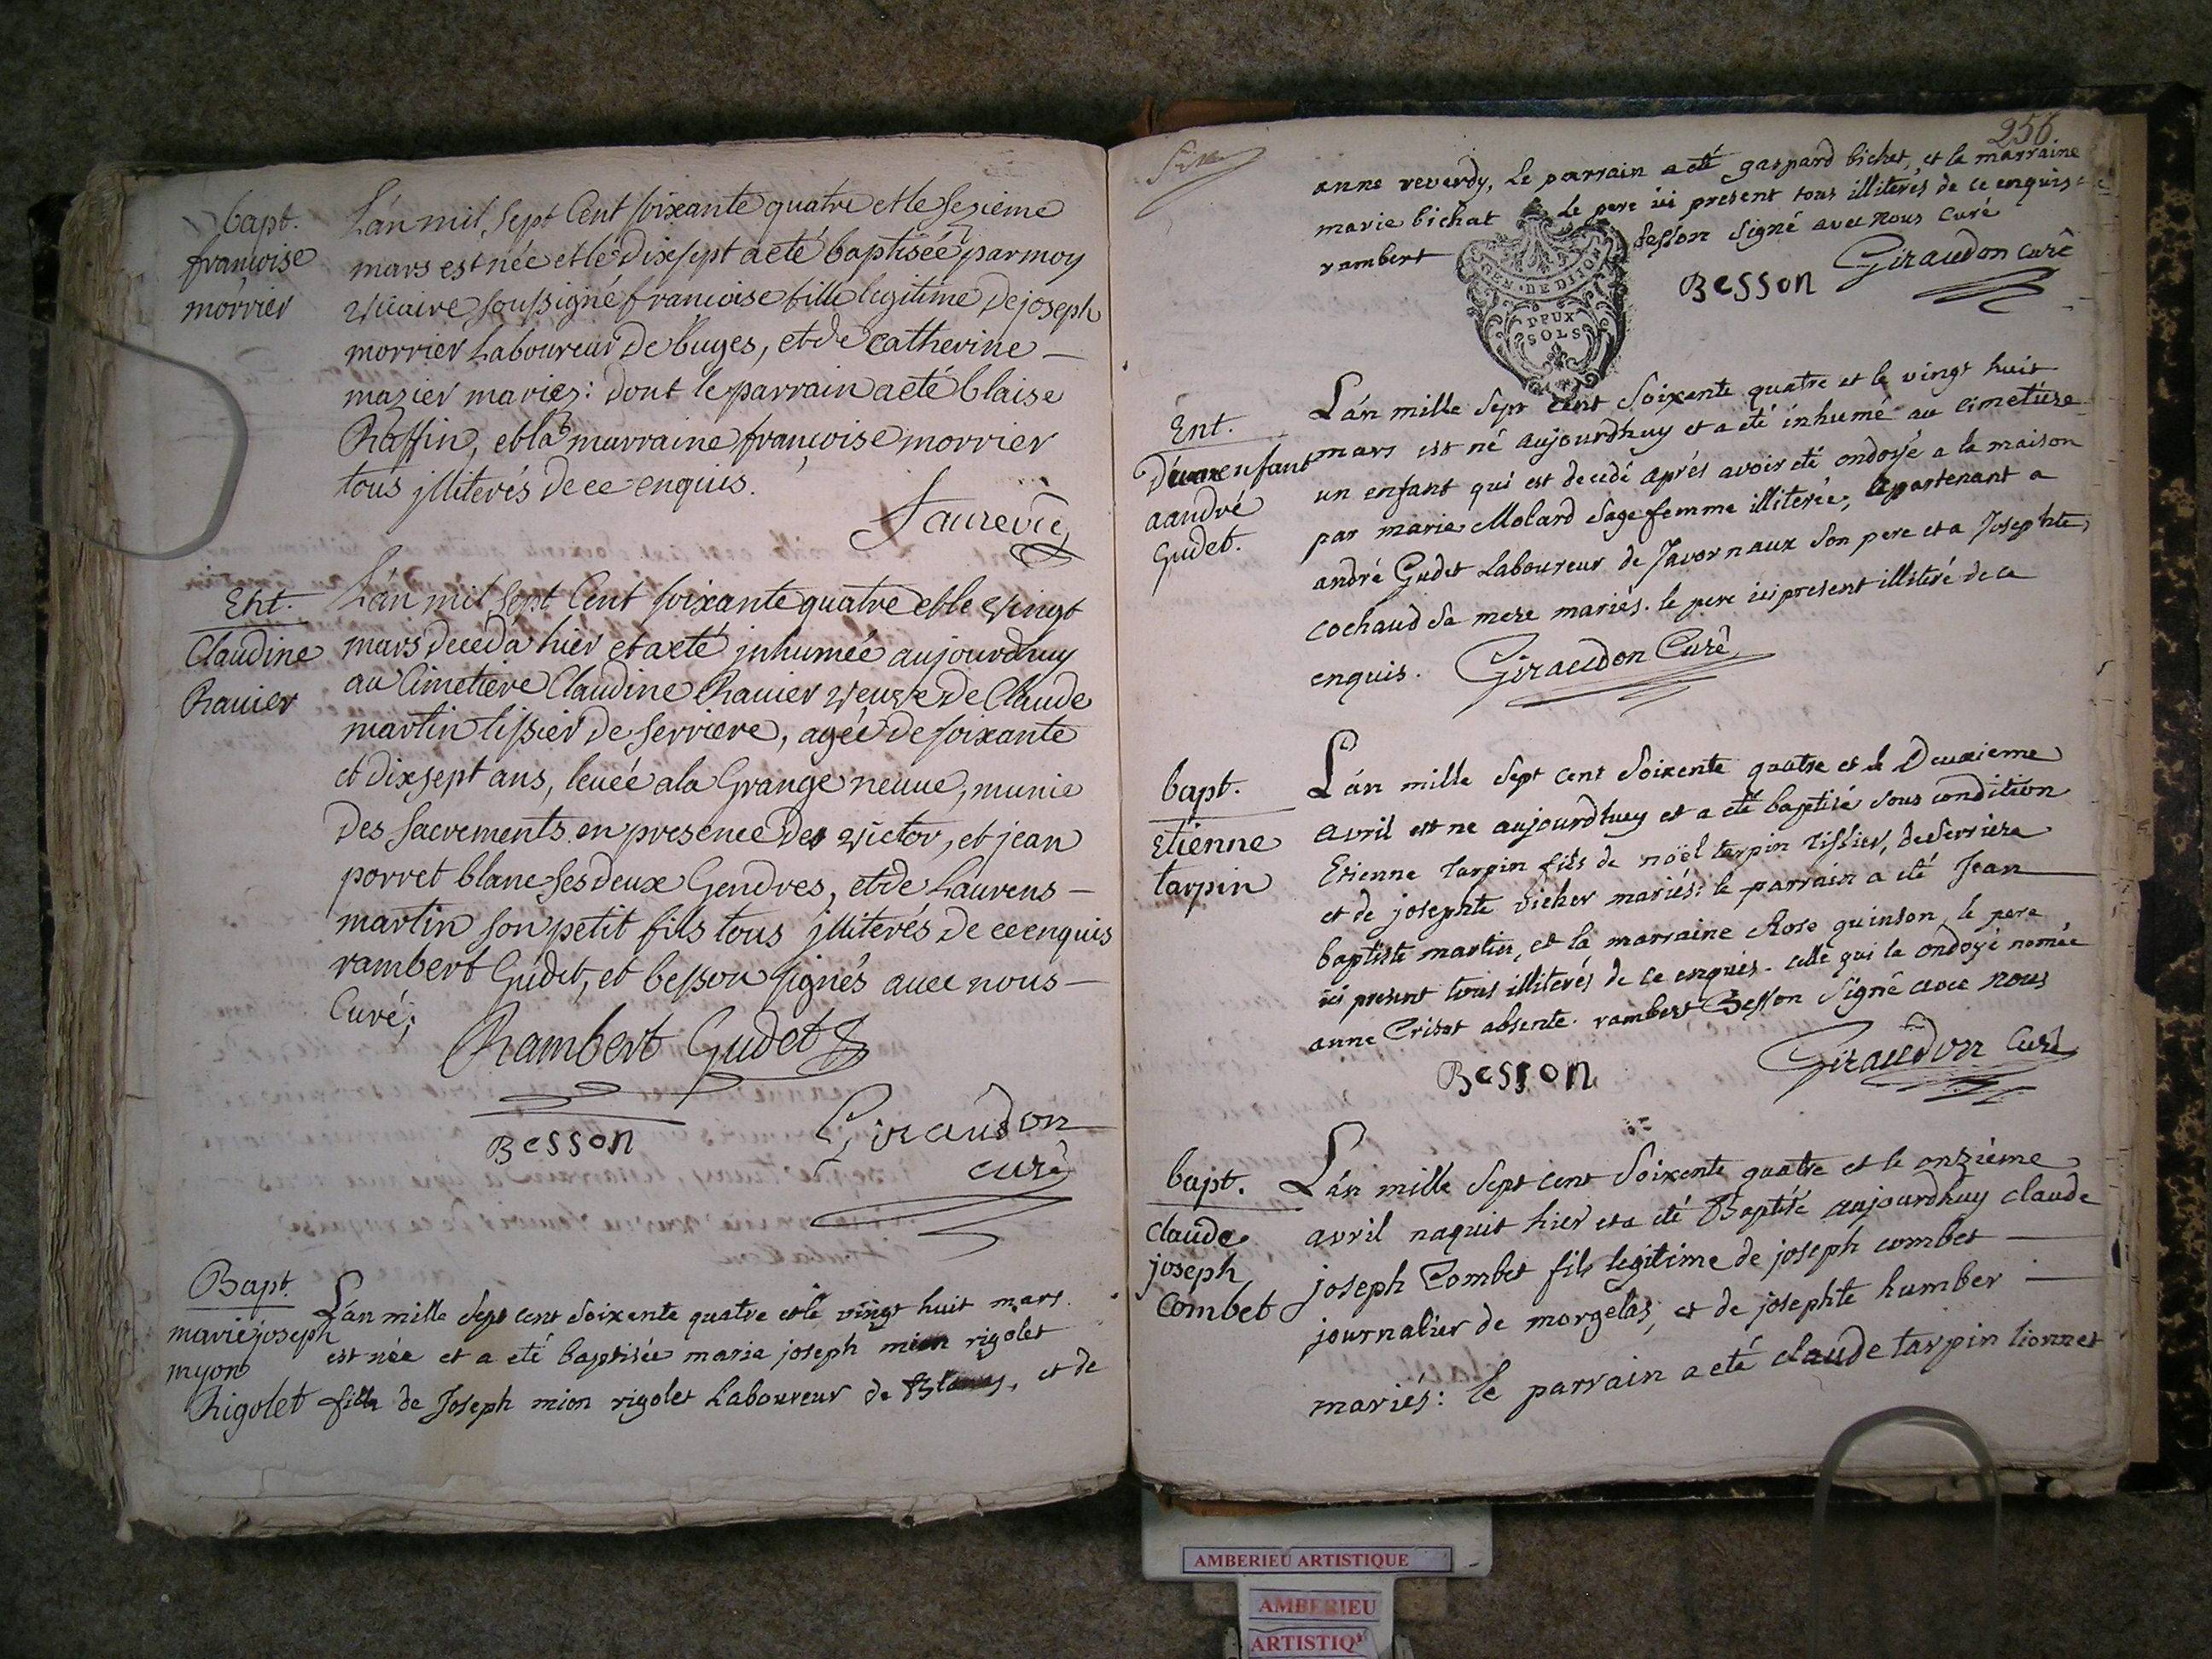 bapt.
francoise
morrier
L'an mil sept Cent soixante quatre et le sezieme
mars est née et lé dixsept a eté baptiseé par moy
vicaire soussigné francoise fille legitime de joseph
morrier Laboureur de buges, et de catherine —
mazier mariés: dont le parrain a eté blaise
Raffin, et la marraine francoise morrier
tous jlliterés de ce enquis.
Ent.
Claudine
Ravier
L'an mil sept Cent soixante quatre et le vingt
mars deceda hier et a eté jnhumée aujourdhuy
au Cimetiere Claudine Ravier veuve de Claude
martin tissier de serriere, ageé de soixante
et dixsept ans, leuée a la Grange neuue, munie
des sacrements en presence de victor, et jean
porret blanc ses deux Gendres, et de Laurens —
martin son petit fils tous jlliterés de ce enquis
rambert Gudet, et besson signés avec nous —
Curé;
Rambert Gudet
Besson
Giraudon
curé
Bapt.
marie joseph
myon
Rigolet
L'an mille sept cent soixente quatre et le vingt huit mars
est née et a eté baptisée marie joseph mion rigolet
fille de Joseph mion rigolet Laboureur de, et de
256.
anne reverdy, le parrain a eté gaspard bichat, et la marraine
marie bichat le pere ici present tous illiterés de ce enquis
rambert besson signé avec nous curé
GEN · DE DIJON
DEUX
SOLS
Besson Giraudon curé
Ent.
D'un enfant
a andré
Gudet.
L'an mille sept cent soixente quatre et le vingt huit
mars est né aujourdhuy et a été inhumé au cimetiere
un enfant qui est decedé aprés avoir eté ondoyé a la maison
par marie Molard sage femme illiterée, apartenant a
andré Gudet Laboureur de Javornaux son pere et a Josephte
cochaud sa mere mariés. le pere ici present illiteré de ce
enquis. Giraudon Curé
bapt.
Etienne
tarpin
L'an mille sept cent soixente quatre et le Deuxieme
avril est ne aujourdhuy et a eté baptisé sous condition
Etienne Tarpin fils de noël tarpin tissier, de serriere
et de josephte vicher mariés: le parrain a eté Jean
baptiste martin, et la marraine Rose quinson, le pere
ici present tous illiterés de ce enquis. celle qui la ondoyé nomée
anne absente. rambert Besson signé avec nous
Besson Giraudon Curé
bapt.
claude
joseph
Combet
L'an mille sept cent soixente quatre et le onzième
avril naquit hier et a eté Baptisé aujourdhuy claude
joseph Combet fils legitime de joseph combet —
journalier de morgelas, et de josephte humber —
mariés: le parrain a eté claude tarpin lionnet
AMBERIEU ARTISTIQUE
AMBERIEU
ARTISTIQ